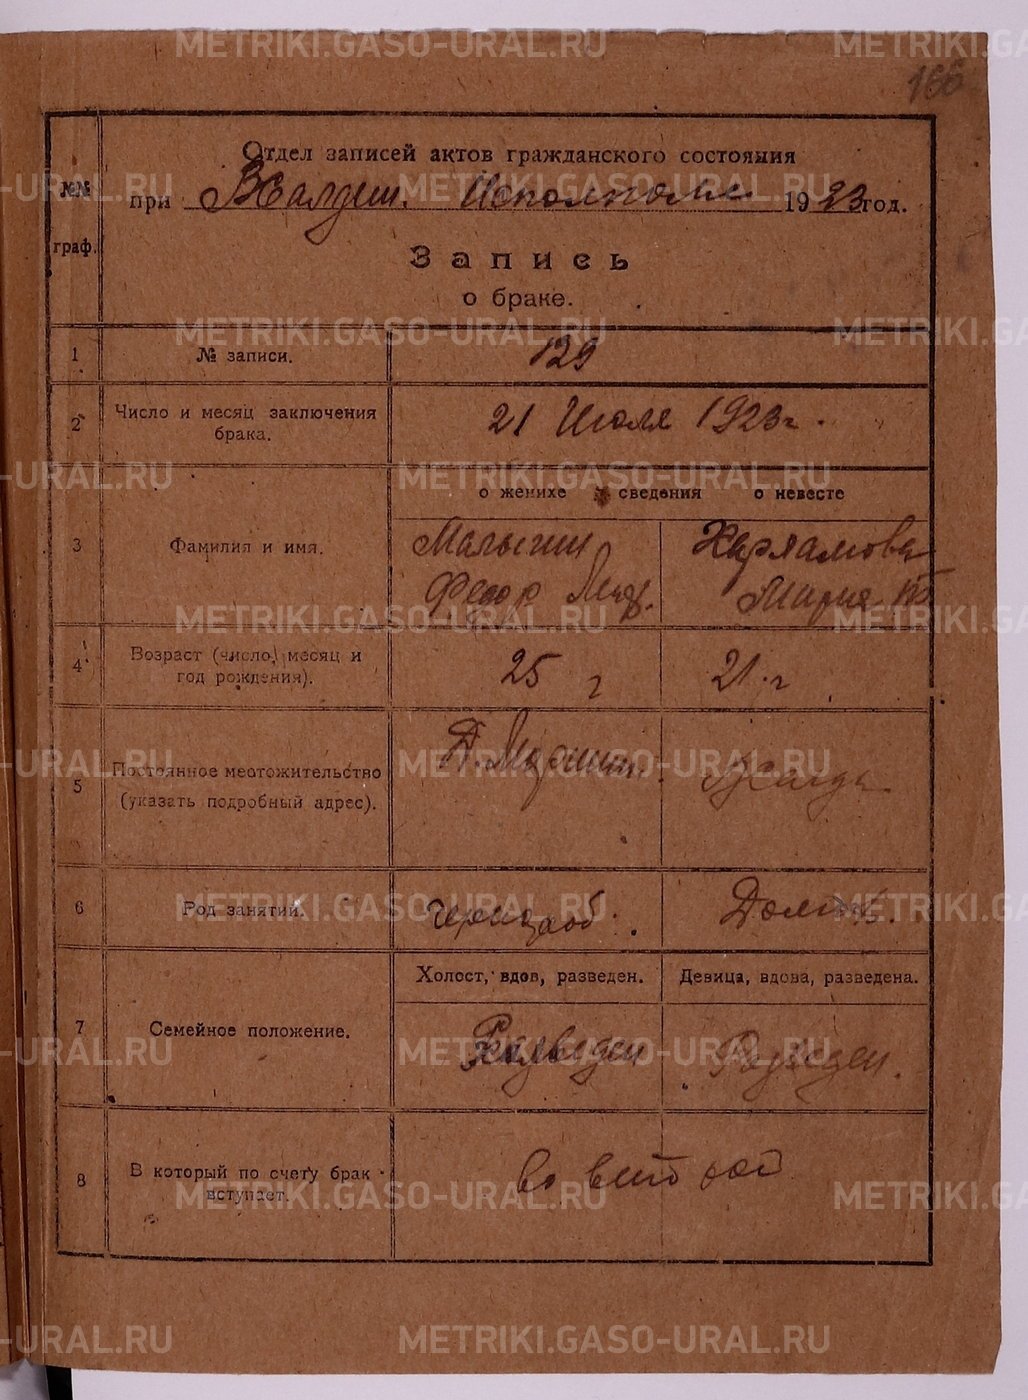 166
№№
граф.
Отдел записей актов гражданского состояния
при В-Салдин. Исполкоме 1923 год.
Запись
о браке.
1 № записи. 129
2 Число и месяц заключения брака. 21 Июля 1923 г.
о женихе сведения о невесте
3 Фамилия и имя.
Малыгин Харламова
Федор Мария
4 Возраст (число, месяц и
год рождения).
25 г 21 г
5 Постоянное местожительство
(указать подробный адрес).
В Салда
6 Род занятий. Чернораб.
Холост, вдов, разведен. Девица, вдова, разведена.
7 Семейное положение.
Разведен Разведен.
8 В который по счету брак
вступает.
во второй
METRIKI.GASO-URAL.RU